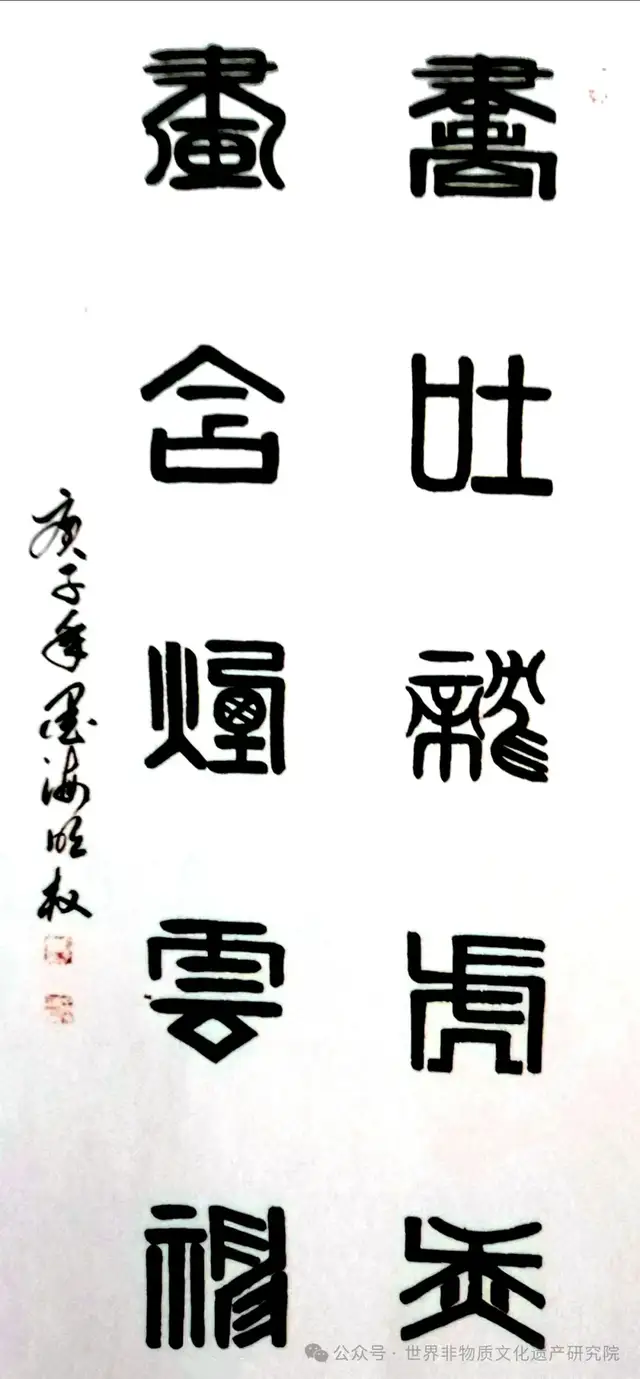 書吐龍虎炁
畫含煙雲
庚子年墨海明权
公众号·世界非物质文化遗产研究院